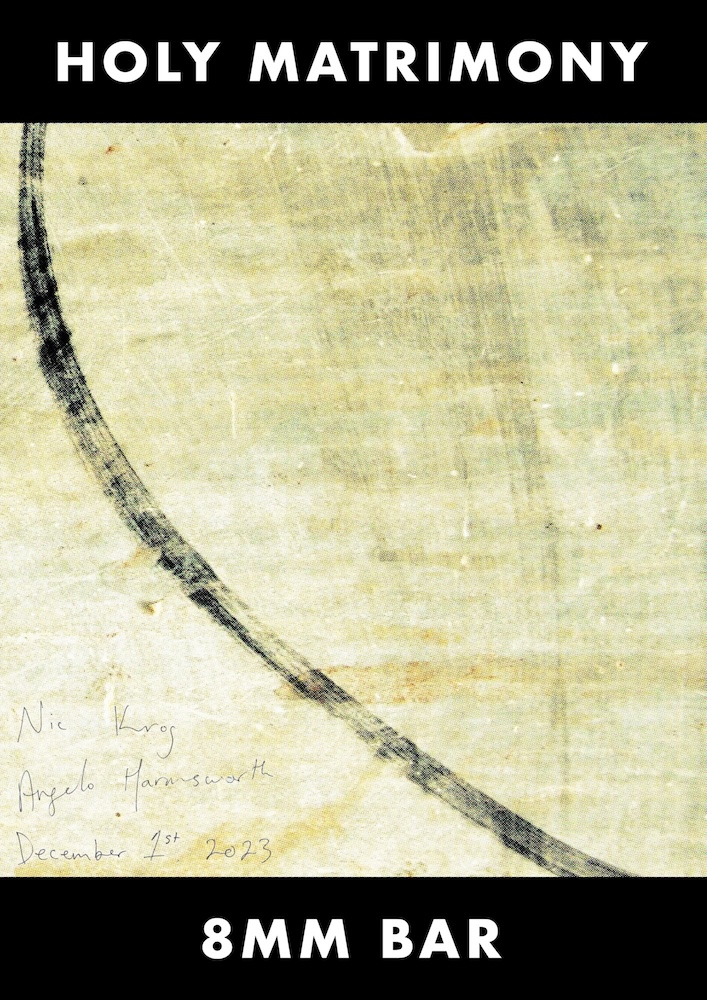 HOLY MATRIMONY
Nic Krog
Angelo Harmsworth
December 1st 2023
8MM BAR